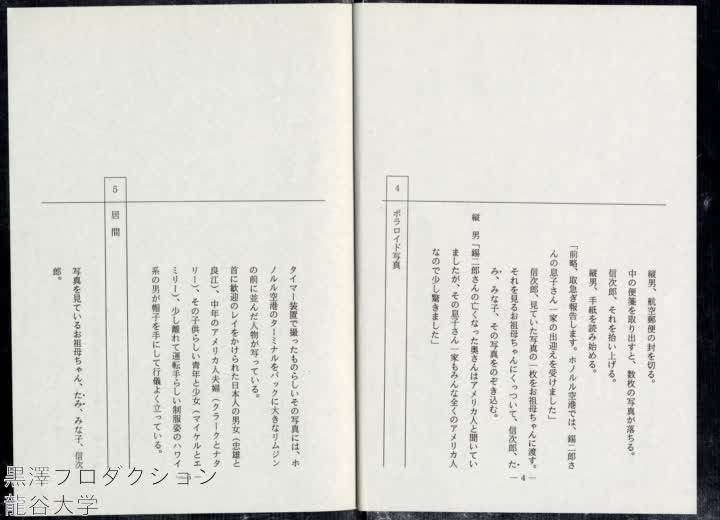 縦男、航空郵便の封を切る。
中の便箋を取り出すと、数枚の写真が落ちる。
信次郎、それを拾い上げる。
縦男、手紙を読み始める。
「前略、取急ぎ報告します。ホノルル空港では、錫二郎さ
んの息子さん一家の出迎えを受けました」
信次郎、見ていた写真の一枚をお祖母ちゃんに渡す。
それを見るお祖母ちゃんにくっついて、信次郎、た
み、みな子、その写真をのぞき込む。
縦　男「錫二郎さんの亡くなった奥さんはアメリカ人と聞いてい
ましたが、その息子さん一家もみんな全くのアメリカ人
なので少し驚きました」
4　ポラロイド写真
―4―
タイマー装置で撮ったものらしいその写真には、ホ
ノルル空港のターミナルをバックに大きなリムジン
の前に並んだ人物が写っている。
首に歓迎のレイをかけられた日本人の男女（忠雄と
良江）、中年のアメリカ人夫婦（クラークとナタ
リー）、その子供らしい青年と少女（マイケルとエ
ミリー）、少し離れて運転手らしい制服姿のハワイ
系の男が帽子を手にして行儀よく立っている。
5　居　間
写真を見ているお祖母ちゃん、たみ、みな子、信次
郎。
黒澤プロダクション
龍谷大学